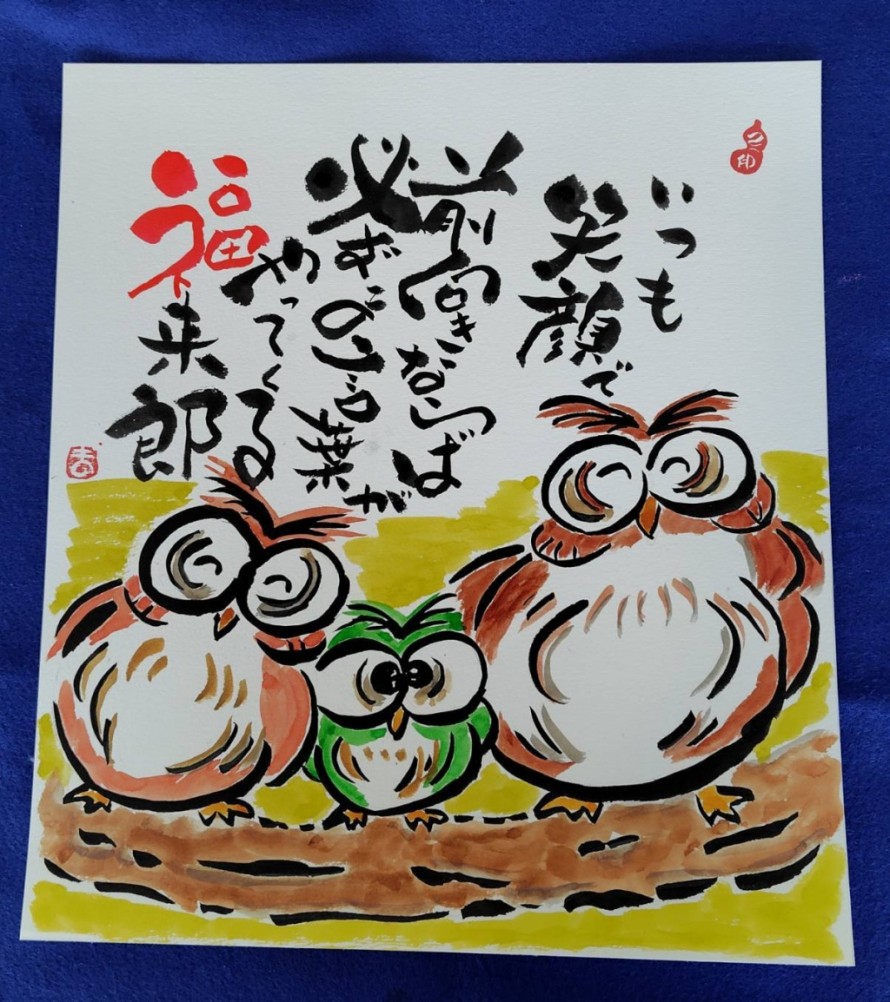 いつも
笑顔で
前向きならば
必ずこの言葉が
やってくる
福来郎